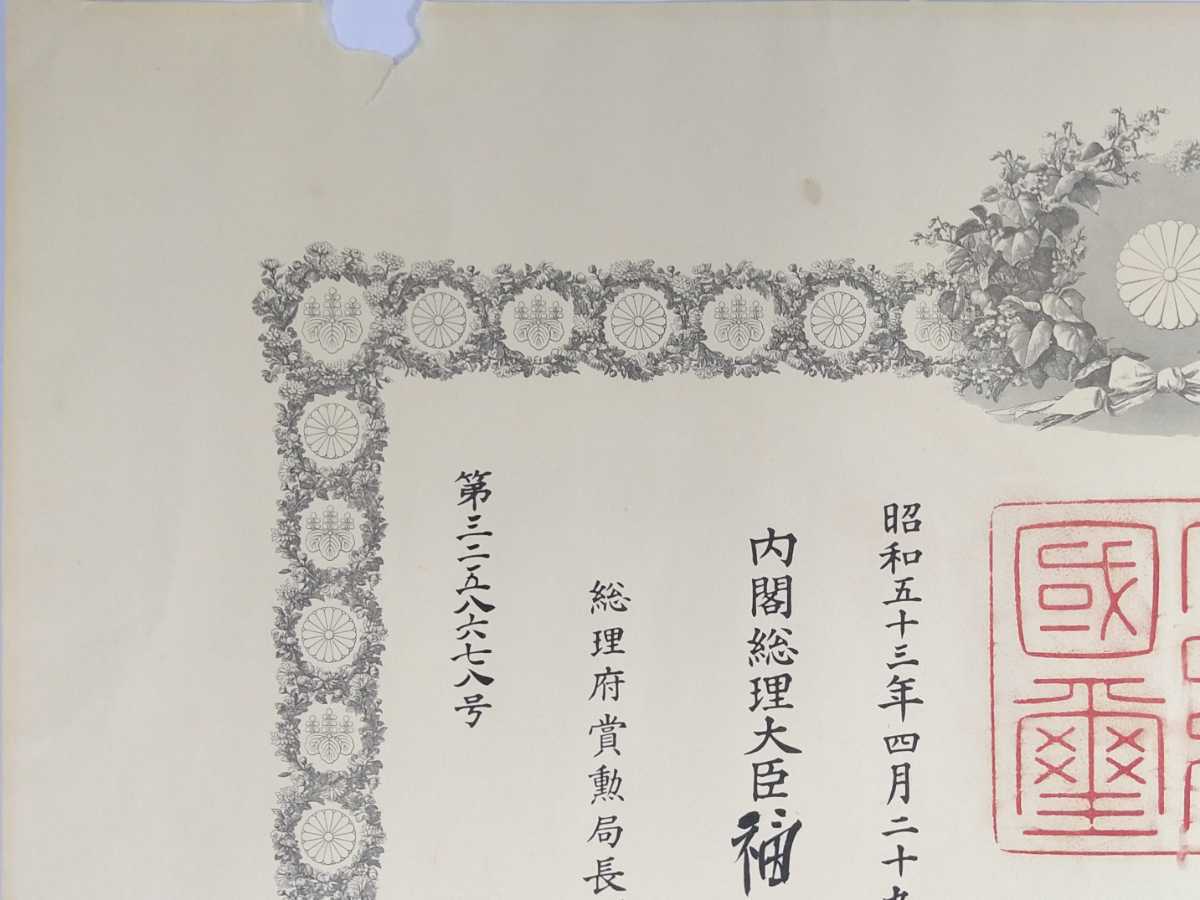 國璽
昭和五十三年四月二十九
内閣総理大臣福
総理府賞勲局長
第三二五八六七八号